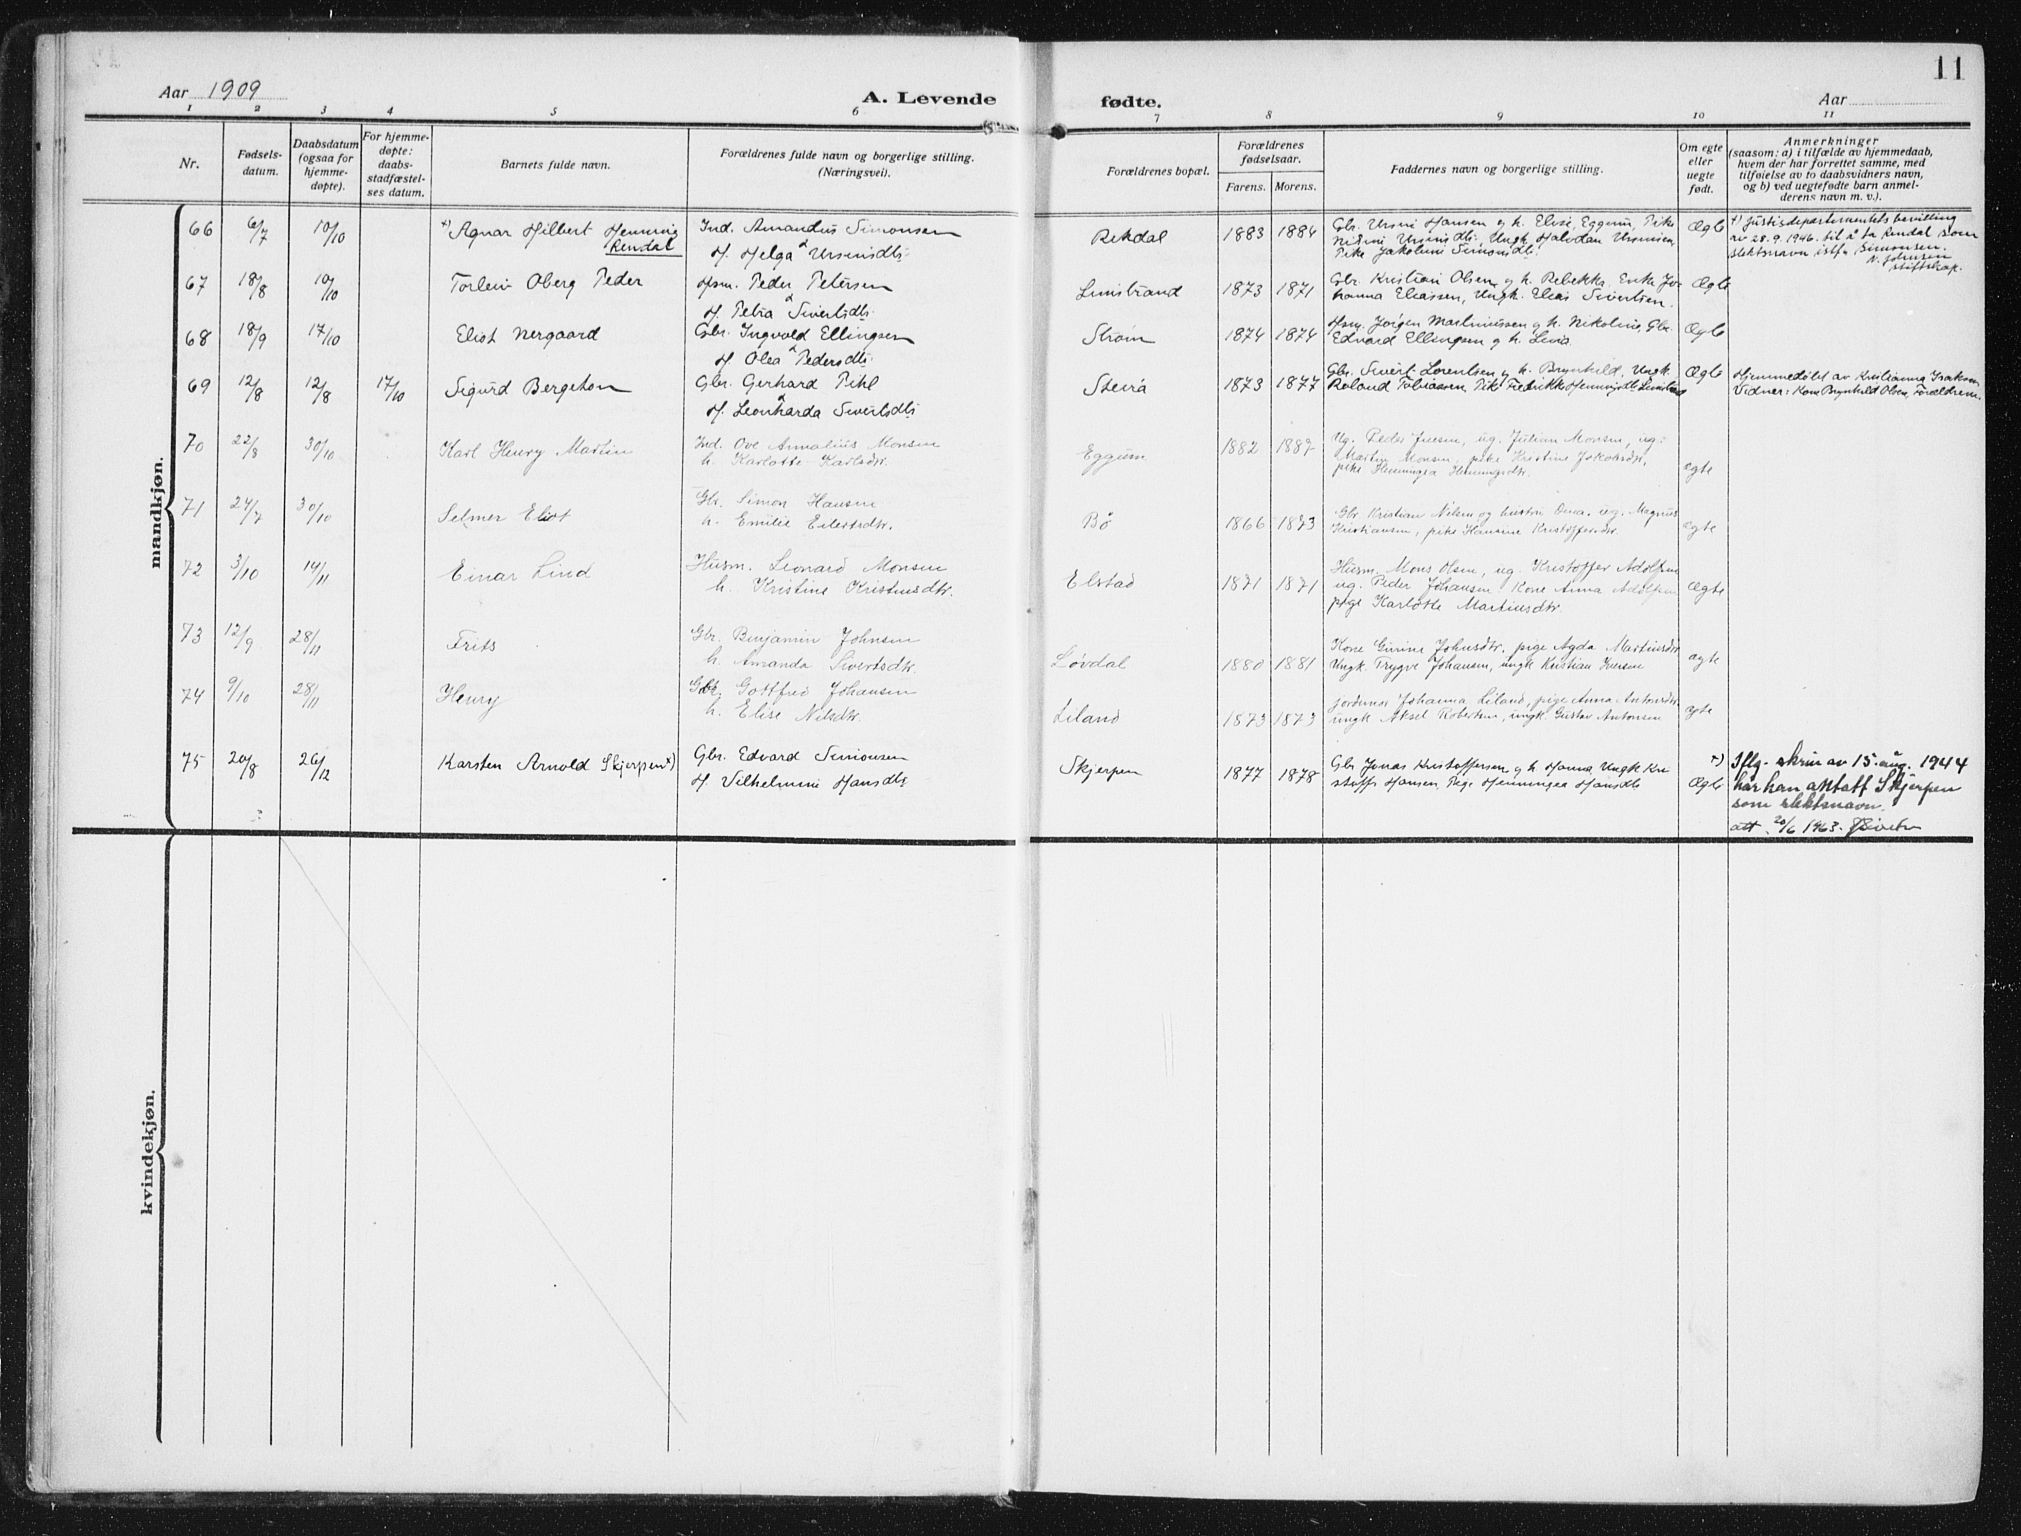 11
Aar 1909
A. Levende
fødte.
Aar
1 2 3 4 5 6 7 8 9 10 11
Nr.
Fødsels-
datum.
Daabsdatum
(ogsaa for
hjemme-
døpte).
For hjemme-
døpte:
daabs-
stadfæstel-
ses datum.
Barnets fulde navn.
Forældrenes fulde navn og borgerlige stilling.
(Næringsvei).
Forældrenes bopæl.
Forældrenes
fødselsaar.
Farens. Morens.
Faddernes navn og borgerlige stilling.
Om egte
eller
uegte
født.
Anmerkninger
(saasom: a) i tilfælde av hjemmedaab,
hvem der har forrettet samme, med
tilføielse av to daabsvidners navn,
og b) ved uegtefødte barn anmel-
derens navn m. v.).
mandkjøn.
66 6/7 10/10 Agnar Hilbert Henning
Rendal
Ind. Amandus Simonsen
H. Helga Ursinsdtr
Rekdal 1883 1884
Gbr. Ursin Hansen og h. Elise, Eggum, Pike
Ursinsdtr. Ungk. Halvdan Ursinsen,
Pike Jakobine Simonsdtr.
Ægte
Justisdepartementets bevilling
av 28.9.1946 til å ta Rendal som
slektsnavn istf. Simonsen.
N. Johnsen
67 18/8 10/10 Torleiv Oberg Peder
Hsm. Peder Petersen
H. Petra Sivertsdtr
Limstrand 1873 1871
Gbr. Kristian Olsen og h. Rebekka, Enke Jo-
hanna Eliassen, Ungk. Elias Sivertsen.
Ægte
68 18/9 17/10 Eliot Nergaard
Gbr. Ingvold Ellingsen
H. Olea Pedersdtr
Strøm 1874 1874
Hsm. Jørgen Martinussen og h. Nikoline, Gbr.
Edvard Ellingsen og h. Lina
Ægte
69 12/8 12/8 17/10 Sigurd Bergeton
Gbr. Gerhard Pihl
H. Leonharda Sivertsdtr
Steira 1873 1877
Gbr. Sivert Lorentsen og h. Brynhild, Ungk.
Roland Tobiassen, Pike Fredrikke Henningsdtr Limstrand
Ægte
Hjemmedøbt av Kristianna Isaksen
Vidner: Kone Brynhild Olsen, Forældrene.
70 22/8 30/10 Karl Henry Martin
Ind. Ove Annalius Monsen
h. Karlotte Karlsdtr.
Eggum 1882 1887
Ug. Peder Jensen, ug. Julian Monsen, ug.
Martin Monsen, pike Kristine Jakobsdtr,
pike Henningea Henningsdtr.
egte
71 24/7 30/10 Selmer Eliot
Gbr. Simon Hansen
h. Emilie Eilertsdtr.
Bø 1866 1873
Gbr Kristian Nilsen og hustru Oma. ug. Magnus
Kristiansen, pike Hansine Kristoffersdtr.
egte
72 3/10 14/11 Einar Lind
Husm. Leonard Monsen
h. Kristine Kristensdtr.
Elstad 1871 1871
Husm. Mons Olsen, ug. Kristoffer Adolfsen
ug. Peder Johansen Kone Anna Adolfsen
pige Karlotte Martinsdtr.
Ægte
73 12/9 28/11 Frits
Gbr. Benjamin Johnsen
h. Amanda Sivertsdtr.
Løvdal 1880 1881
Kone Gurine Johnsdtr. pige Agda Martinsdtr
Ungk. Trygve Johansen, ungk Kristian Iversen
egte
74 9/10 28/11 Henry
Gbr. Gottfred Johansen
h. Elise Nilsdtr.
Liland 1873 1873
jordmor Johanna Liland, pige Anna Antonsdtr.
ungk. Aksel Robertsen, ungk. Gustav Antonsen
egte
75 20/8 26/12 Karsten Arnold Skjerpen x)
Gbr. Edvard Simonsen
H. Vilhelmine Hansdtr
Skjerpen 1877 1878
Gbr Jonas Kristoffersen og h. Hanna, Ungk Kri
stoffer Hansen, Pige Henningea Hansdtr
Ægte
x) Iflg. skriv av 15. aug. 1944
har han antatt Skjerpen
som slektsnavn.
att. 20/6 1963.
kvindekjøn.